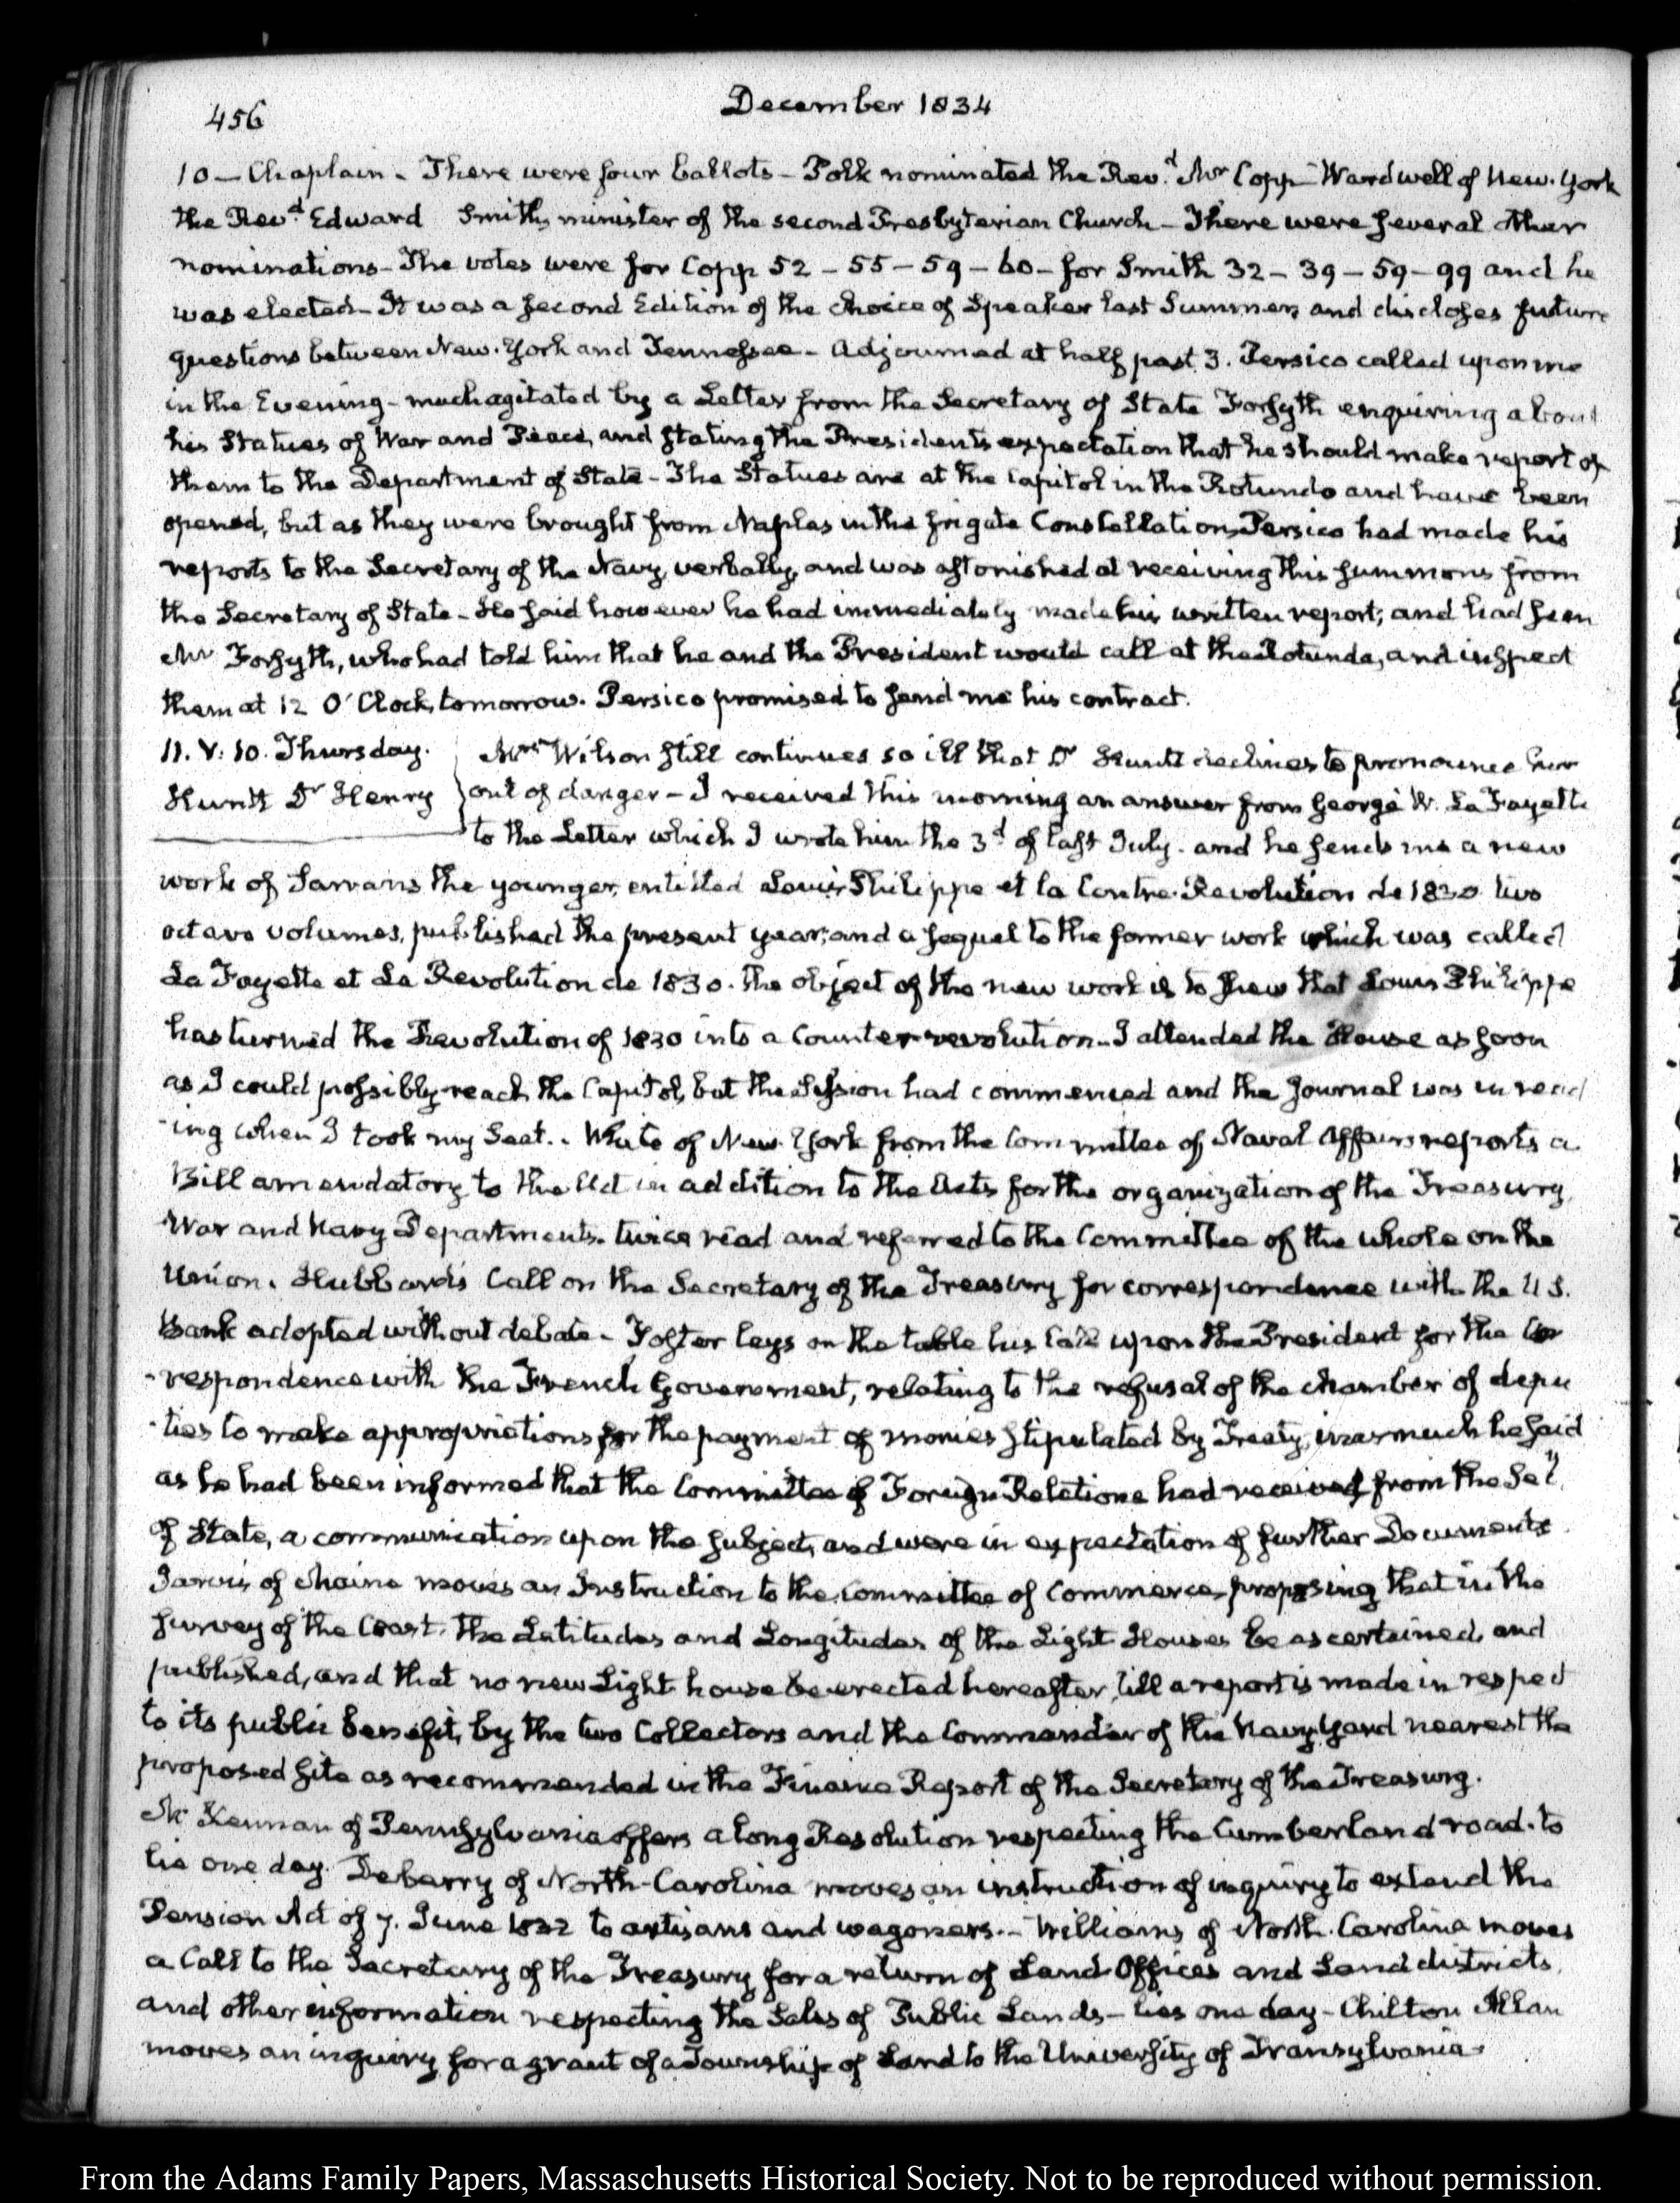 456
December 1834
10 — Chaplain - There were four ballots - Polk nominated the Revd. Mr Copp - Wardwell of New-York
the Revd. Edward Smith, minister of the second Presbyterian Church - There were several other
nominations - The votes were for Copp 52 - 55 - 59 - 60 - for Smith 32 - 39 - 59 - 99 and he
was elected - It was a second Edition of the choice of Speaker last Summer, and discloses future
questions between New-York and Tennessee - Adjourned at half past 3. Persico called upon me
in the Evening - much agitated by a Letter from the Secretary of State Forsyth enquiring about
his Statues of War and Peace, and stating the President's expectation that he should make report of
them to the Department of State - The Statues are at the Capitol in the Rotundo and have been
opened, but as they were brought from Naples in the frigate Constellation, Persico had made his
reports to the Secretary of the Navy, verbally, and was astonished at receiving this summons from
the Secretary of State - He said however he had immediately made his written report; and had seen
Mr Forsyth, who had told him that he and the President would call at the Rotunda, and inspect
them at 12 O'Clock, tomorrow. Persico promised to send me his contract.
11. V: 10. Thursday. Mrs Wilson still continues so ill that Dr Huntt declines to pronounce her
Huntt Dr Henry out of danger - I received this morning an answer from George W. La Fayette
to the Letter which I wrote him the 3d of last July - and he sends me a new
work of Sarrans the younger, entitled Louis Philippe et la Contre-Revolution de 1830 two
octavo volumes, published the present year, and a sequel to the former work which was called
La Fayette et La Revolution de 1830. The object of the new work is to shew that Louis Philippe
has turned the Revolution of 1830 into a Counter-revolution - I attended the House as soon
as I could possibly reach the Capitol, but the Session had commenced and the Journal was in read
-ing when I took my Seat. - White of New-York from the Committee of Naval Affairs reports a
Bill amendatory to the Act in addition to the Acts for the organization of the Treasury
War and Navy Departments. twice read and referred to the Committee of the whole on the
Union. Hubbard's Call on the Secretary of the Treasury for correspondence with the U.S.
Bank adopted without debate - Foster lays on the table his Call upon the President for the Cor
-respondence with the French Government, relating to the refusal of the chamber of depu
-ties to make appropriations for the payment of monies stipulated by Treaty, inasmuch he said
as he had been informed that the Committee of Foreign Relations had received from the Secy
of State, a communication upon the subject, and were in expectation of further Documents
Jarvis of Maine moves an Instruction to the Committee of Commerce, proposing that in the
survey of the Coast, the Latitudes and Longitudes of the Light Houses be ascertained, and
published, and that no new Light house be erected hereafter, till a report is made in respect
to its public benefit, by the two Collectors and the Commander of the Navy Yard nearest the
proposed site as recommended in the Finance Report of the Secretary of the Treasury.
McKennan of Pennsylvania offers a long Resolution respecting the Cumberland road. to
lie one day. Deberry of North-Carolina moves an instruction of inquiry to extend the
Pension Act of 7. June 1832 to artisans and wagoners. - Williams of North-Carolina moves
a Call to the Secretary of the Treasury for a return of Land Offices and Land districts,
and other information respecting the Sales of Public Lands - lies one day - Chilton Allan
moves an inquiry for a grant of a Township of Land to the University of Transylvania -
From the Adams Family Papers, Massaschusetts Historical Society. Not to be reproduced without permission.